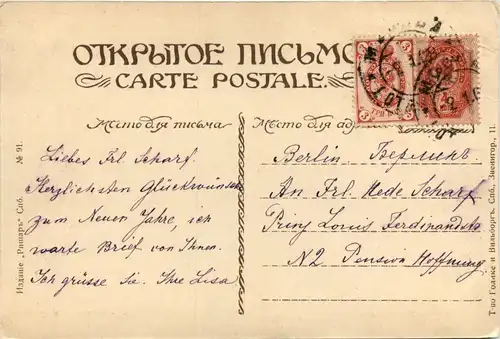 ОТКРЫТОЕ ПИСЬМО
CARTE POSTALE.
Мѣсто для письма
Liebes Frl Scharf.
Herzlichsten Glückwunsch
zum Neuen Jahre, ich
warte Brief von Ihnen.
Ich grüsse Sie. Ihre Lisa
Мѣсто для
Berlin Берлинъ.
An Frl. Hede Scharf
Prinz Louis Ferdinandstr
N2 Pension Hoffnung
Изданіе „Ришаръ“ Спб. № 91.
Т-во Голике и Вильборгъ. Спб., Звенигор., 11.